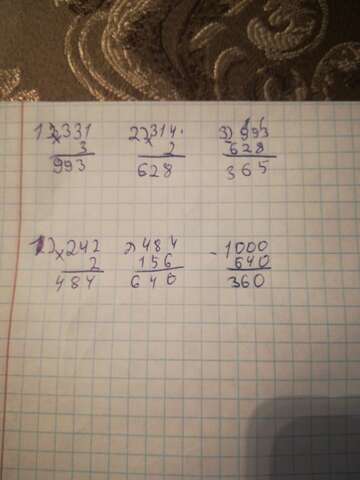 1) 331 2) 314 · 3) 993
× 3 × 2 628
993 628 365
1) × 242 2) 484 - 1000
2 156 640
484 640 360